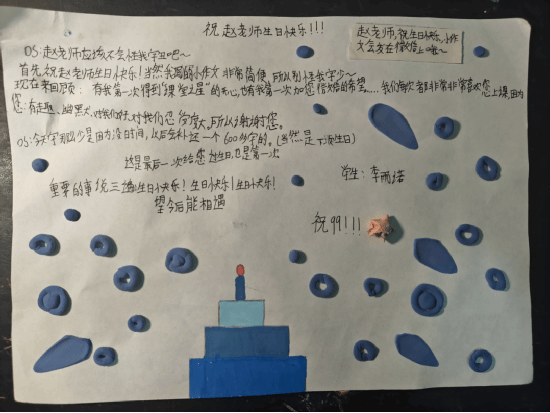 祝赵老师生日快乐!!!
赵老师,祝生日快乐,小作
文会发在微信上哦~
OS:赵老师应该不会怪我字丑吧~
首先祝赵老师生日快乐!当然我写的小作文非常简便,所以别怪我字少~
现在来回顾:有我第一次得到“课堂之星”的开心,也有我第一次加您微信的希望……我们每次都非常非常喜欢您上课,因为
您:有走题、幽默大、对我们好、对我们包容度大。所以谢谢您。
OS:今天写那么少是因为没时间,以后会补这一个600多字的。(当然是下次生日)
这是最后一次给您过生日,也是第一次
重要的事说三遍:生日快乐!生日快乐!生日快乐!
望今后能相遇
学生:李雨诺
祝99!!!